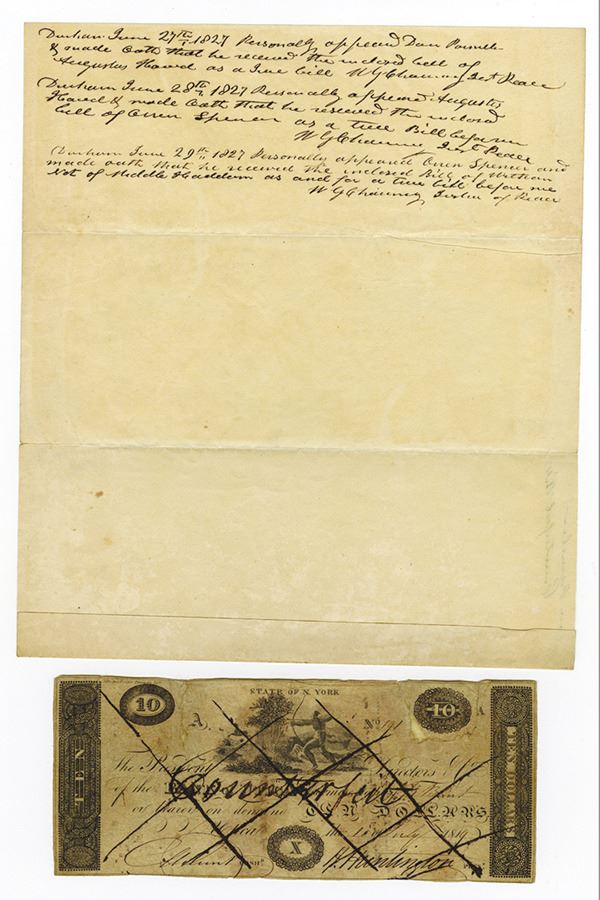 Durham June 27th 1827 Personally appeared Dan Parmele
& made Oath that he received the inclosed bill of
Augustus Howd as a True bill W G Chauncy Just Peace
Durham June 28th 1827 Personally appeared Augustus
Howd & made Oath that he received the inclosed
bill of Oren Spencer as a true Bill before me
W G Chauncy Just Peace
Durham June 29th 1827 Personally appeared Oren Spencer and
made oath that he received the inclosed Bill of
of Middle Haddam as and for a true bill before me
W G Chauncy Justice of Peace
STATE OF N. YORK
10
10
A.
No
TEN
TEN DOLLARS
The President Directors & Co
of the
Counterfeit
or bearer on demand TEN DOLLARS
Utica the July 1819
X
Hunt Cashr.
H Huntington